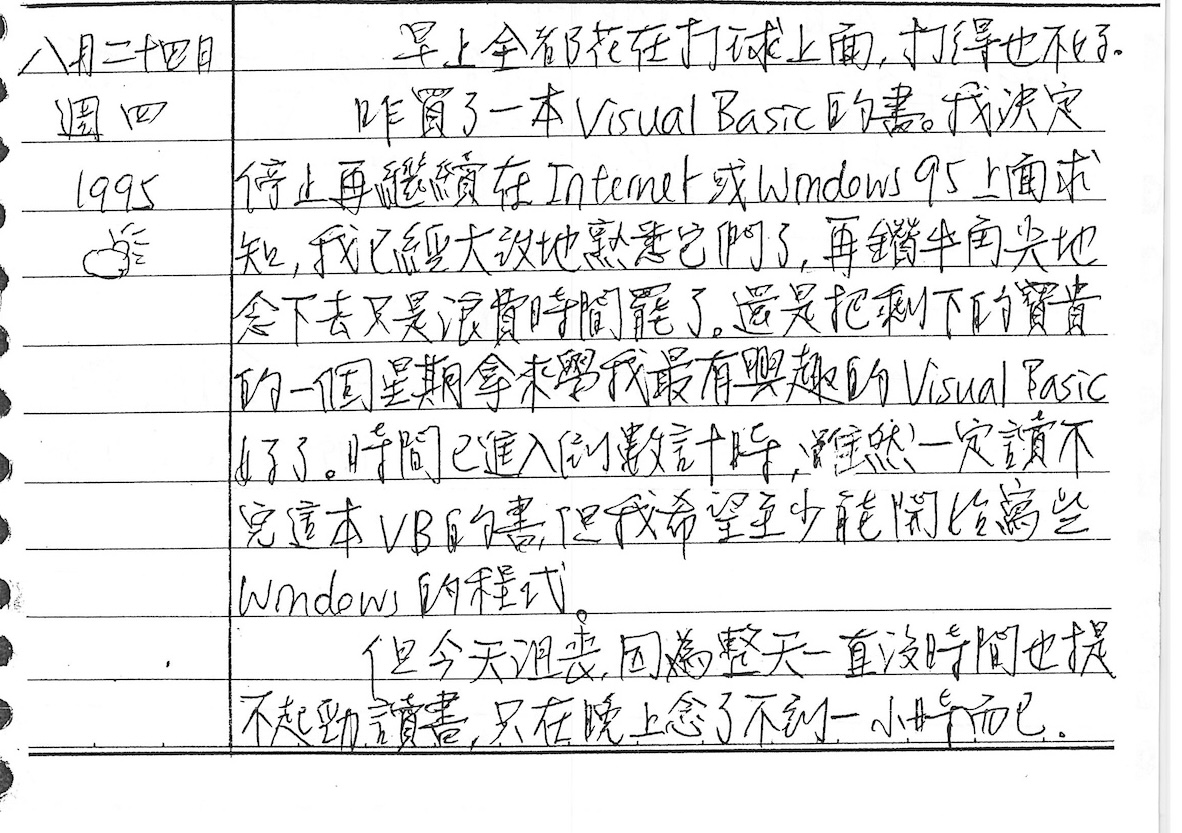 八月二十四日
週四
1995
早上全都花在打球上面,打得也不好.
昨買了一本Visual Basic的書。我決定
停止再繼續在Internet或Windows 95上面求
知,我已經大致地熟悉它們了,再鑽牛角尖地
念下去只是浪費時間罷了。還是把剩下的寶貴
的一個星期拿來學我最有興趣的Visual Basic
好了。時間已進入倒數計時,雖然一定讀不
完這本VB的書,但我希望至少能開始寫些
Windows的程式。
但今天沮喪,因為整天一直沒時間也提
不起勁讀書,只在晚上念了不到一小時而已.